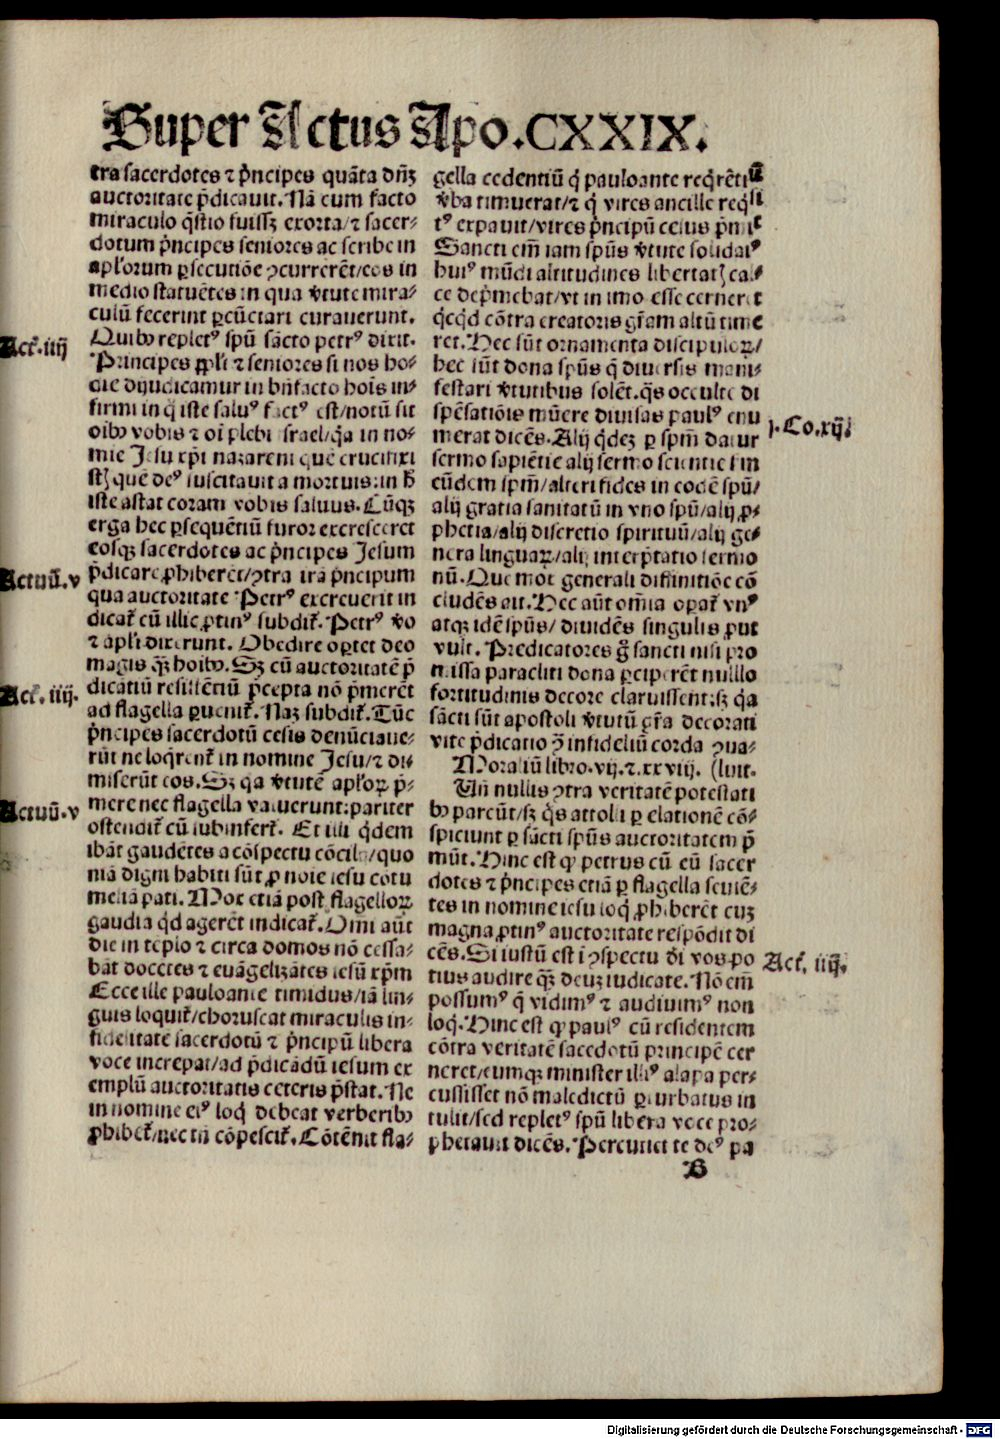 Super Actus Apo. CXXIX.
tra sacerdotes ⁊ p̓ncipes quãta dñꝫ
auctoritate p̓dicauit. Nã cum facto
miraculo q̃stio fuissꝫ exorta/⁊ sacer⸗
dotum p̓ncipes seniores ac scribe in
apl'orum ꝑsecutiõe ꝯcurrerẽt/eos in
medio statuẽtes in qua v̓tute mira⸗
culũ fecerint ꝑcũctari curauerunt.
Act̃. iiij
Quibꝰ repletꝰ spũ sãcto petrꝰ dixit.
Principes ppl'i ⁊ seniores si nos ho⸗
die dijudicamur in bñfacto hoĩs in⸗
firmi in q̃ iste saluꝰ factꝰ est/notũ sit
oibꝰ vobis ⁊ oĩ plebi israel/q̃a in no⸗
mie Jesu xp̃i nazareni quẽ crucifixi
stꝭ quẽ deꝰ suscitauit a mortuis: in h̓
iste astat coram vobis saluus. Cũqꝫ
erga hec ꝑsequẽtiũ furor excresceret
eosqꝫ sacerdotes ac p̓ncipes Jesum
Actuũ. v
p̓dicare ꝓhiberẽt/ꝯtra irã p̓ncipum
qua auctoritate Petrꝰ excreuerit in
dicat̃ cũ illic ꝓtinꝰ subdit̃. Petrꝰ v̓o
⁊ apl'i dixerunt. Obedire oꝑtet deo
magis qꝫ̃ hoibꝰ. Sꝫ cũ auctoritatẽ p̃
Act̃. iiij.
dicãtiũ resistẽtiũ p̃cepta nõ p̓merẽt
ad flagella ꝑuenit̃. Naꝫ subdit̃. Tũc
p̓ncipes sacerdotũ cesis denũciaue⸗
rũt ne loq̃rent̃ in nomine Jesu/⁊ di⸗
miserũt eos. Sꝫ q̃a v̓tutẽ apl'oꝝ p̓⸗
Actuũ. v
mere nec flagella valuerunt: pariter
ostendit̃ cũ subinfert̃. Et illi q̓dem
ibãt gaudẽtes a cõspectu cõcilij/quo
niã digni habiti sũt ꝓ noĩe iesu cõtu
meliã pati. Mox etiã post flagelloꝝ
gaudia q̓d agerẽt indicat̃. Omi aũt
die in tẽplo ⁊ circa domos nõ cessa⸗
bãt docẽtes ⁊ euãgelizãtes iesũ xp̃m
Ecce ille pauloante timidus/iã lin⸗
guis loquit̃/choruscat miraculis in⸗
fidelitatẽ sacerdotũ ⁊ p̓ncipũ libera
voce increpat/ad p̓dicãdũ iesum ex
emplũ auctoritatis ceteris p̓stat. Ne
in nomine eiꝰ loq̓ debeat verberibꝰ
ꝓhibet̃/nec tñ cõpescit̃. Cõtẽnit fla⸗
gella cedentiũ q̓ pauloante req̓rẽtiũ
v̓ba timuerat/⁊ q̓ vires ancille req̓si
tꝰ expauit/vires p̓ncipũ cesus p̓mit
Sancti em̃ iam spũs v̓tute solidatꝰ
huiꝰ mũdi altitudines libertatꝭ cal⸗
ce dep̓mebat/vt in imo esse cerneret
q̓cq̓d cõtra creatoris gr̃am altũ time
ret. Hec sũt ornamenta discipuloꝝ/
hec sũt dona spũs q̃ diuersis mani⸗
festari v̓tutibus solẽt. q̃s occulte di
spẽsatiõis mũere diuisas paulꝰ enu
j. Co. xij.
merat dicẽs. Alij q̓deꝫ ꝑ spm̃ datur
sermo sapiẽtie alij sermo scientie fm
eũdem spm̃/alteri fides in eodẽ spũ/
alij gratia sanitatũ in vno spũ/alij ꝓ⸗
phetia/alij discretio spirituũ/alij ge⸗
nera linguaꝝ/alij interp̓tatio sermo
nũ. Que mox generali diffinitiõe cõ
cludẽs ait. Hec aũt om̃ia oꝑat̃ vnꝰ
atqꝫ idẽ spũs/ diuidẽs singulis ꝓut
vult. Predicatores g̃ sancti nisi pro
missa paracliti dona ꝑciperẽt nulllo
fortitudinis decore claruissent: sꝫ q̃a
sãcti sũt apostoli v̓tutũ gr̃a decorati
vite p̓dicatio ꝫ̃ infideliũ corda ꝯua⸗
Moraliũ libro. vij. ⁊. xxviij. (luit.
Uñ nullis ꝯtra veritatẽ potestati
bꝰ parcũt/sꝫ q̃s attolli ꝑ elationẽ cõ⸗
spiciunt ꝑ sãcti spũs auctoritatem p̃
mũt. Hinc est qꝙ petrus cũ eũ sacer
dotes ⁊ p̓ncipes etiã ꝑ flagella seuiẽ⸗
tes in nomine iesu loq̓ ꝓhiberẽt cuꝫ
magna ꝓtinꝰ auctoritate respõdit di
Act̃. iiij.
cẽs. Si iustũ est ĩ ꝯspectu dĩ vos po
tius audire qꝫ̃ deuꝫ iudicate. Nõ em̃
possumꝰ q̃ vidimꝰ ⁊ audiuimꝰ non
loq̓. Hinc est ꝙ paulꝰ cũ residentem
cõtra veritatẽ sacedotũ principẽ cer
neret/eumqꝫ minister illiꝰ alapa per⸗
cussisset nõ maledictũ ꝑturbatus in
tulit/sed repletꝰ spũ libera voce pro⸗
phetauit dicẽs. Percutiet te deꝰ pa
B
Digitalisierung gefördert durch die Deutsche Forschungsgemeinschaft - DFG